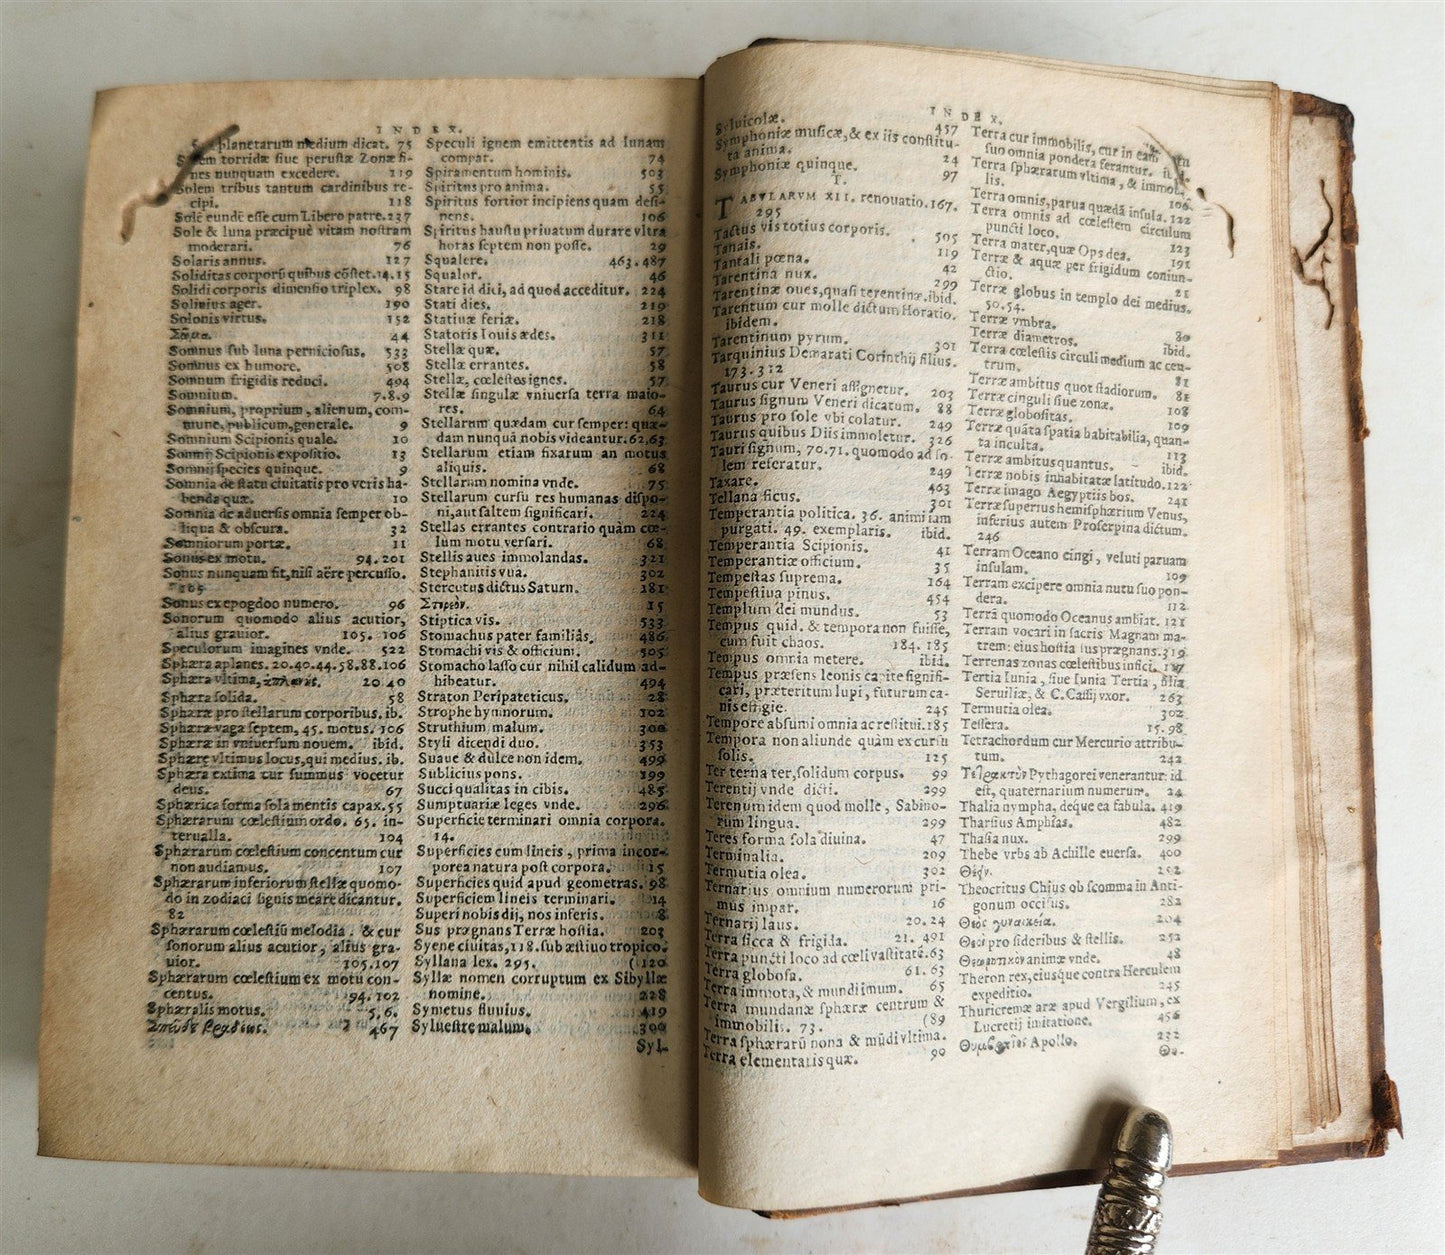 INDEX.
planetarum medium dicat. 75
Solem torridæ siue perustæ Zonæ fi-
nes nunquam excedere. 119
Solem tribus tantum cardinibus re-
cipi. 118
Solē eundē esse cum Libero patre. 237
Sole & luna præcipuè vitam nostram
moderari. 76
Solaris annus. 127
Soliditas corporū quibus cōstet. 14. 15
Solidi corporis dimensio triplex. 98
Solinius ager. 190
Solonis virtus. 152
Σῶμα. 44
Somnus sub luna perniciosus. 533
Somnus ex humore. 508
Somnum frigidis reduci. 494
Somnium. 7. 8. 9
Somnium, proprium, alienum, com-
mune, publicum, generale. 9
Somnium Scipionis quale. 10
Somnij Scipionis expositio. 13
Somnij species quinque. 9
Somnia de statu ciuitatis pro veris ha-
benda quæ. 10
Somnia de aduersis omnia semper ob-
liqua & obscura. 32
Somniorum portæ. 11
Sonus ex motu. 94. 201
Sonus nunquam fit, nisi aëre percusso.
105
Sonus ex epogdoo numero. 96
Sonorum quomodo alius acutior,
alius grauior. 105. 106
Speculorum imagines vnde. 522
Sphæra aplanes. 20. 40. 44. 58. 88. 106
Sphæra vltima, ἀπλανής. 20 40
Sphæra solida. 58
Sphæræ pro stellarum corporibus. ib.
Sphæræ vagæ septem, 45. motus. 106
Sphæræ in vniuersum nouem. ibid.
Sphæræ vltimus locus, qui medius. ib.
Sphæra extima cur summus vocetur
deus. 67
Sphærica forma sola mentis capax. 55
Sphærarum cœlestium ordo. 65. in-
terualla. 104
Sphærarum cœlestium concentum cur
non audiamus. 107
Sphærarum inferiorum stellæ quomo-
do in zodiaci signis meare dicantur.
82
Sphærarum cœlestiū melodia. & cur
sonorum alius acutior, alius gra-
uior. 105. 107
Sphærarum cœlestium ex motu con-
centus. 94. 102
Sphæralis motus. 5. 6.
Σπεῦδε βραδέως. 467
Speculi ignem emittentis ad lunam
compar. 74
Spiramentum hominis. 503
Spiritus pro anima. 55
Spiritus fortior incipiens quam desi-
nens. 106
Spiritus haustu priuatum durare vltra
horas septem non posse. 29
Squalere. 463. 487
Squalor. 46
Stare id dici, ad quod acceditur. 224
Stati dies. 219
Statiuæ feriæ. 218
Statoris Iouis ædes. 311
Stellæ quæ. 57
Stellæ errantes. 58
Stellæ, cœlestes ignes. 57
Stellæ singulæ vniuersa terra maio-
res. 64
Stellarum quædam cur semper: quæ-
dam nunquā nobis videantur. 62, 63
Stellarum etiam fixarum an motus
aliquis. 68
Stellarum nomina vnde. 75
Stellarum cursu res humanas dispo-
ni, aut saltem significari. 224
Stellas errantes contrario quàm cœ-
lum motu versari. 68
Stellis aues immolandas. 321
Stephanitis vua. 302
Stercutus dictus Saturn. 281
Στερεόν. 15
Stiptica vis. 533
Stomachus pater familiâs. 486
Stomachi vis & officium. 505
Stomacho lasso cur nihil calidum ad-
hibeatur. 494
Straton Peripateticus. 28
Strophe hymnorum. 102
Struthium malum. 300
Styli dicendi duo. 353
Suaue & dulce non idem. 499
Sublicius pons. 199
Succi qualitas in cibis. 485
Sumptuariæ leges vnde. 296
Superficie terminari omnia corpora.
14.
Superficies cum lineis, prima incor-
porea natura post corpora. 15
Superficies quid apud geometras. 98
Superficiem lineis terminari. 14
Superi nobis dij, nos inferis. 8
Sus prægnans Terræ hostia. 203
Syene ciuitas, 118. sub æstiuo tropico.
Syllana lex. 295. (120
Syllæ nomen corruptum ex Sibyllæ
nomine. 228
Symetus fluuius. 419
Syluestre malum. 300
Syl-
INDEX.
Syluicolæ. 457
Symphoniæ musicæ, & ex iis constitu-
ta anima. 24
Symphoniæ quinque. 97
T.
TABVLARVM XII. renouatio. 167.
295
Tactus vis totius corporis. 505
Tanais. 119
Tantali pœna. 42
Tarentina nux. 299
Tarentinæ oues, quasi terentinæ. ibid.
Tarentum cur molle dictum Horatio.
ibidem.
Tarentinum pyrum. 301
Tarquinius Demarati Corinthij filius.
173. 312
Taurus cur Veneri assignetur. 203
Taurus signum Veneri dicatum. 88
Taurus pro sole vbi colatur. 249
Taurus quibus Diis immoletur. 326
Tauri signum, 70. 71. quomodo ad so-
lem referatur. 249
Taxare. 463
Tellana ficus. 301
Temperantia politica. 36. animi iam
purgati. 49. exemplaris. ibid.
Temperantia Scipionis. 41
Temperantiæ officium. 35
Tempestas suprema. 164
Tempestiua pinus. 454
Templum dei mundus. 53
Tempus quid. & tempora non fuisse,
cum fuit chaos. 184. 185
Tempus omnia metere. ibid.
Tempus præsens leonis capite signifi-
cari, præteritum lupi, futurum ca-
nis effigie. 245
Tempore absumi omnia ac restitui. 185
Tempora non aliunde quàm ex cursu
solis. 125
Ter terna ter, solidum corpus. 99
Terentij vnde dicti. 299
Terenum idem quod molle, Sabino-
rum lingua. 299
Teres forma sola diuina. 47
Terminalia. 209
Termutia olea. 302
Ternarius omnium numerorum pri-
mus impar. 16
Ternarij laus. 20. 24
Terra sicca & frigida. 21. 491
Terra puncti loco ad cœli vastitatē. 63
Terra globosa. 61. 63
Terra immota, & mundi imum. 65
Terra mundanæ sphæræ centrum &
immobilis. 73. (89
Terra sphærarū nona & mūdi vltima.
Terra elementaris quæ. 90
Terra cur immobilis, cur in eam
suo omnia pondera ferantur.
Terra sphærarum vltima, & immobi-
lis. 106
Terra omnis, parua quædā insula. 122
Terra omnis ad cœlestem circulum
puncti loco. 123
Terra mater, quæ Ops dea. 191
Terræ & aquæ per frigidum coniun-
ctio. 21
Terræ globus in templo dei medius.
50. 54.
Terræ vmbra. 80
Terræ diametros. ibid.
Terra cœlestis circuli medium ac cen-
trum. 81
Terræ ambitus quot stadiorum. 81
Terræ cinguli siue zonæ. 108
Terræ globositas. 109
Terræ quāta spatia habitabilia, quan-
ta inculta. 113
Terræ ambitus quantus. ibid.
Terræ nobis inhabitatæ latitudo. 122
Terræ imago Aegyptiis bos. 241
Terræ superius hemisphærium Venus,
inferius autem Proserpina dictum.
246
Terram Oceano cingi, veluti paruam
insulam. 109
Terram excipere omnia nutu suo pon-
dera. 112
Terrā quomodo Oceanus ambiat. 121
Terram vocari in sacris Magnam ma-
trem: eius hostia sus prægnans. 319
Terrenas zonas cœlestibus infici. 117
Tertia Iunia, siue Iunia Tertia, filia
Seruiliæ, & C. Cassij vxor. 263
Termutia olea. 302
Tessera. 15. 98
Tetrachordum cur Mercurio attribu-
tum. 242
Τετρακτὺν Pythagorei venerantur: id
est, quaternarium numerum. 24
Thalia nympha, deque ea fabula. 419
Tharsius Amphias. 482
Thasia nux. 299
Thebe vrbs ab Achille euersa. 400
Θέειν. 252
Theocritus Chius ob scomma in Anti-
gonum occisus. 282
Θεὸς γυναικεία. 204
Θεοὶ pro sideribus & stellis. 252
Θεωρητικὸν animæ vnde. 48
Theron rex, eiusque contra Herculem
expeditio. 245
Thuricremæ aræ apud Vergilium, ex
Lucretij imitatione. 456
Θυμβραῖος Apollo. 232
Θυ-